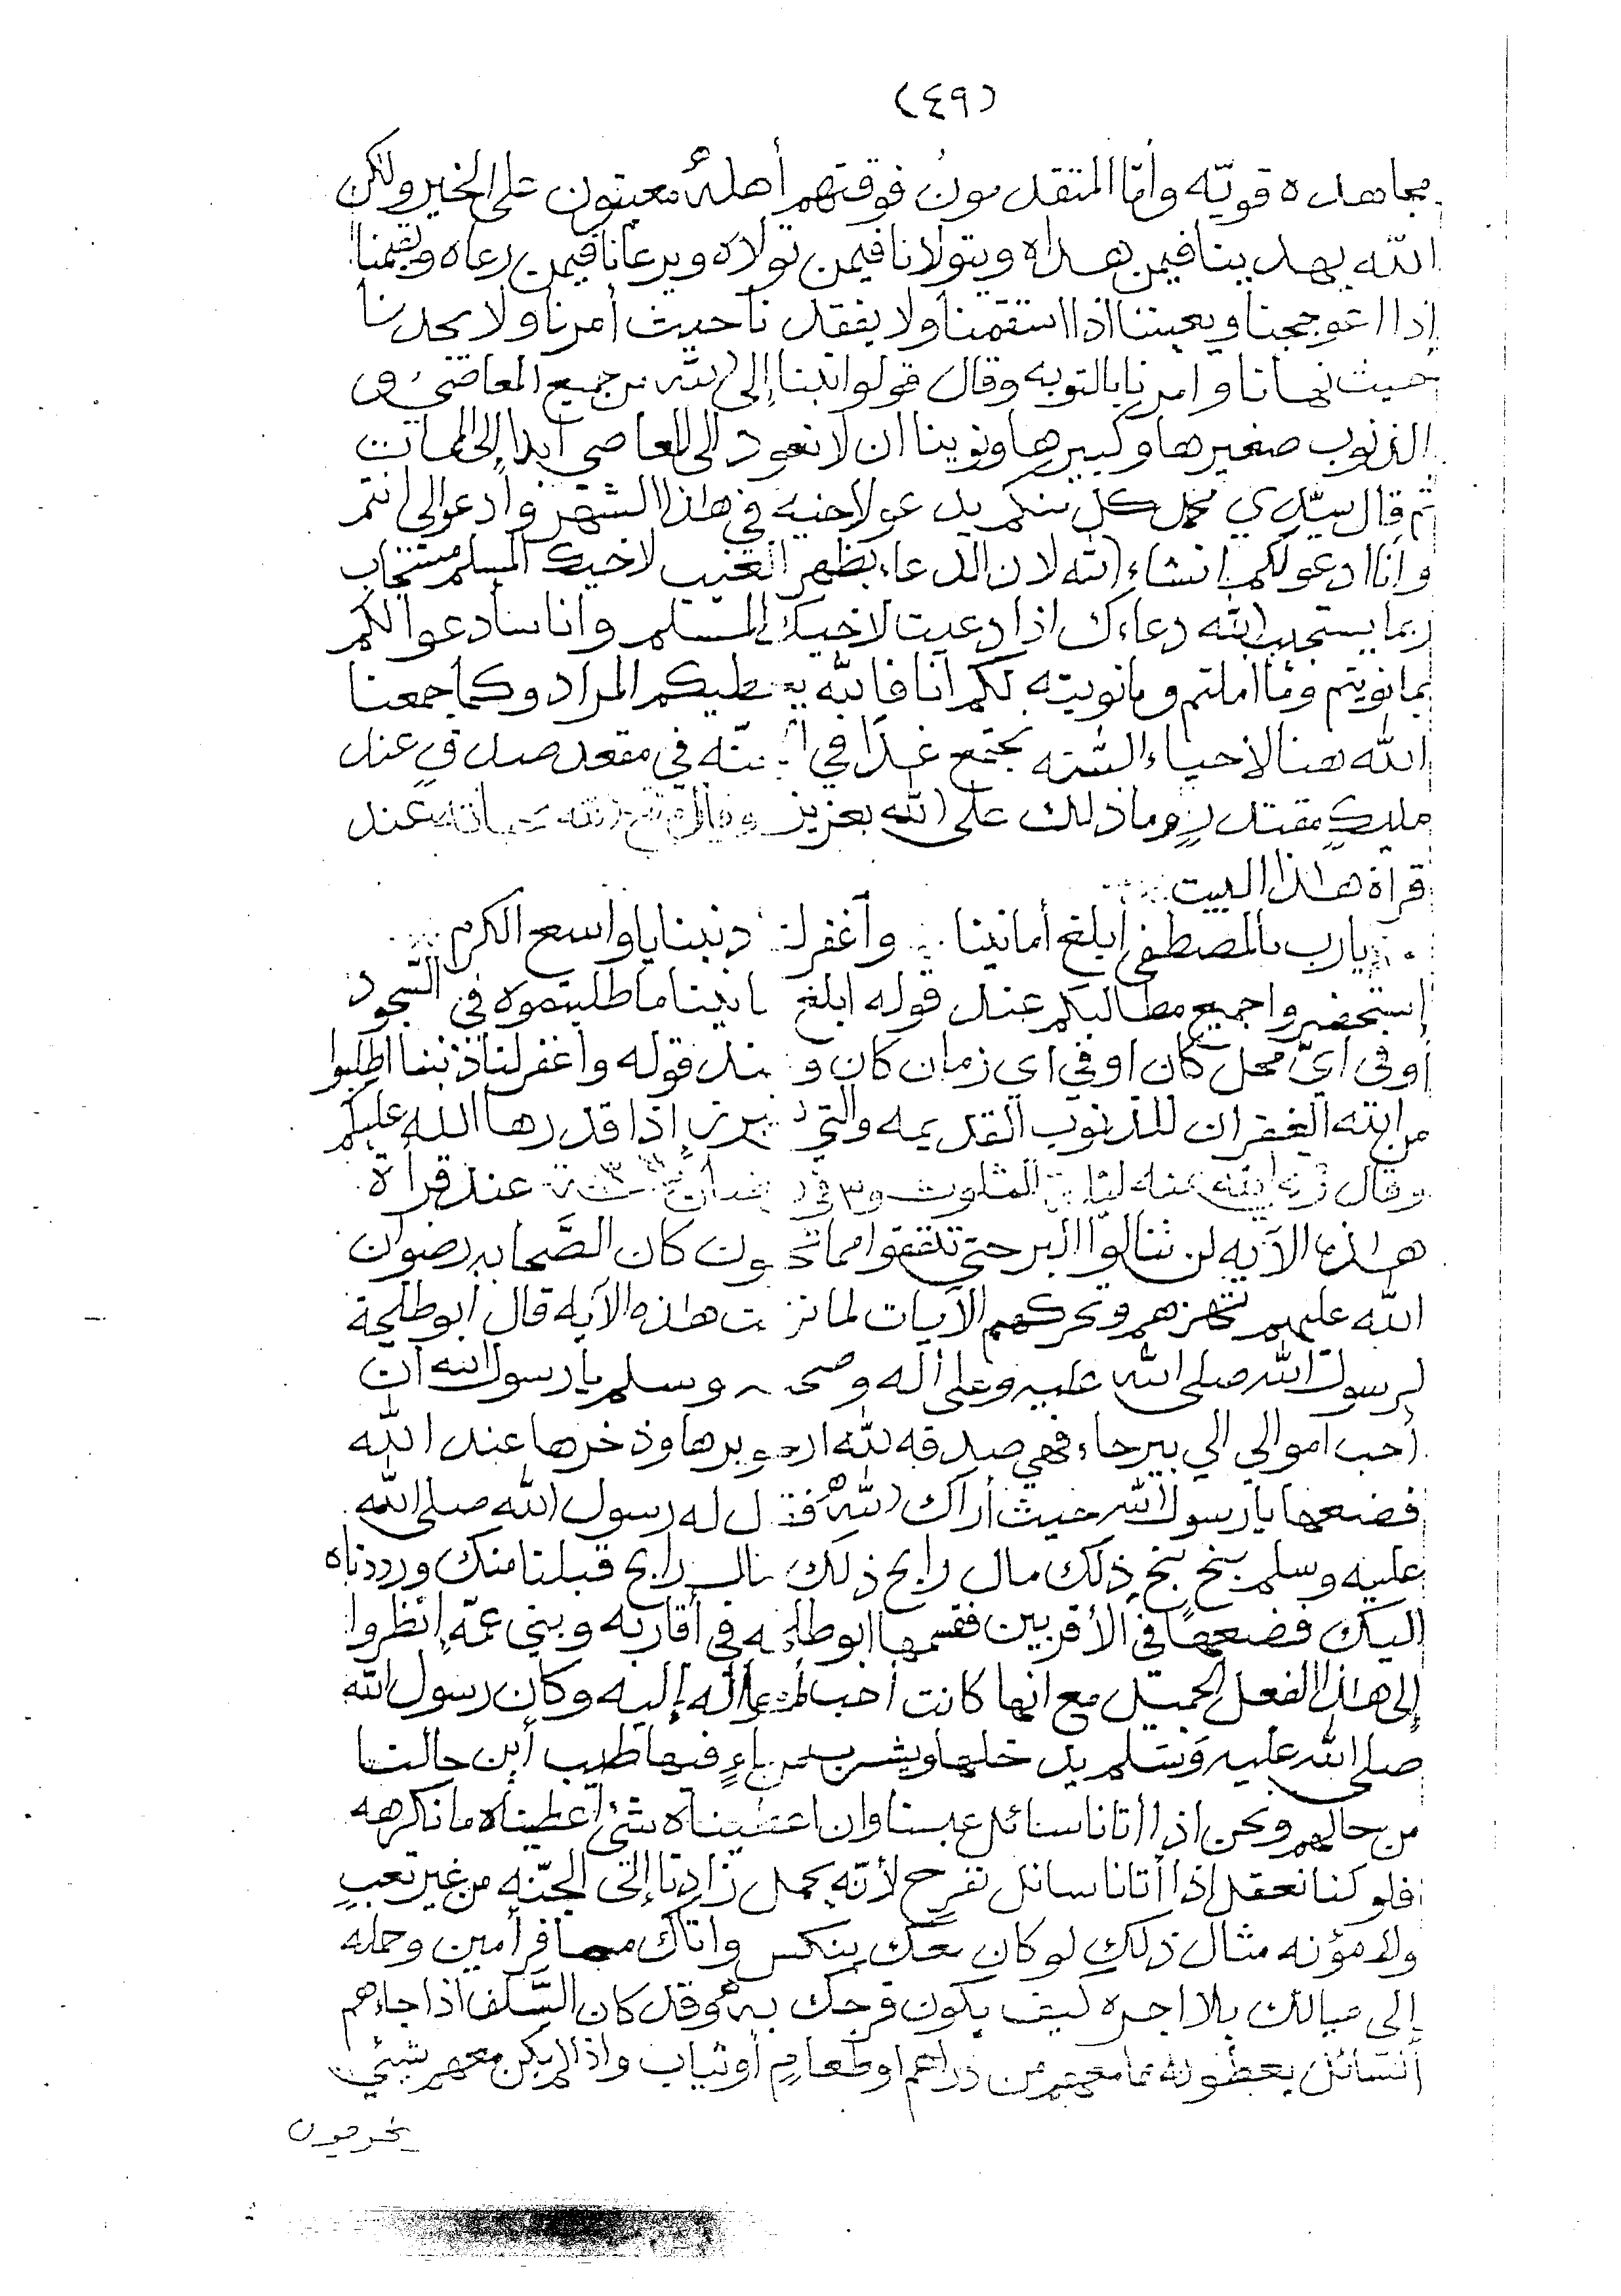 (٤٩)
مجاهده قويّه وأمّا المتقدمون فوقتهم أهله معينون على الخير ولكن
الله يهدينا فيمن هداه ويتولانا فيمن تولاه ويرعانا فيمن رعاه ويقيمنا
إذا اعوججنا ويعيننا اذا استقمنا ولا يفقدنا حيث أمرنا ولا يجدنا
حيث نهانا وامرنا بالتوبه وقال قولوا تبنا إلى الله من جميع المعاصي و
الذنوب صغيرها وكبيرها ونوينا ان لا نعود الى المعاصي أبدا إلى الممات
ثم قال سيدي محمد كل منكم يدعو لاخيه في هاذا الشهر وادعوا لي انتم
وأنا ادعو لكم انشاء الله لان الدعاء بظهر الغيب لاخيك المسلم مستجاب
ربما يستجيب الله دعاءك اذا دعيت لاخيك المسلم وانا سأدعوا لكم
بما نويتم وما املتم وما نويته لكم أنا فالله يعطيكم المراد وكما جمعنا
الله هنا لاحياء السنه نجتمع غدًا في الجنّه في مقعد صدقٍ عند
مليكٍ مقتدرٍ وما ذلك على الله بعزيز وقال متع الله بحياته عند
قراة هاذا البيت
يارب بالمصطفى ابلغ أمانينا وأغفر لنا ذنبنا يا واسع الكرم
إستحضروا جميع مطالبكم عند قوله ابلغ امانينا ما طلبتموه في السّجود
أو في ايّ محل كان او في اي زمان كان وعند قوله واغفر لنا ذنبنا اطلبوا
من الله الغفران للذنوب القديمه والتي إذا قدرها الله عليكم
وقال رضي الله عنه ليلة الثلوث ٣ في رمضان عند قرأة
هاذه الآيه لن تنالوا البر حتى تنفقوا مما تحبون كان الصَّحابه رضوان
الله عليهم تهزهم وتحركهم الآيات لما نزلت هاذه الآيه قال ابو طلحة
لرسول الله صلى الله عليه وعلى أله وصحبه وسلم يا رسول الله ان
أحب اموالي الي بيرحاء فهي صدقه لله ارجو برها وذخرها عند الله
فضعها يا رسول الله حيث أراك الله فقال له رسول الله صلى الله
عليه وسلم بخٍ بخٍ ذلك مال رابح ذلك مال رابح قبلنا منك ورددناه
اليك فضعها في الأقربين فقسمها ابو طلحه في أقاربه وبني عمّه إنظروا
إلى هاذا الفعل الجميل مع انها كانت أحب أمواله إليه وكان رسول الله
صلى الله عليه وسلم يدخلها ويشرب من ماءٍ فيها طيب أين حالنا
من حالهم ونحن اذا أتانا سائل عبسنا وان اعطيناه شئ أعطيناه ما نكرهه
فلو كنا نعقل إذا أتانا سائل نفرح لأنّه يحمل زادنا إلى الجنّه من غير تعبٍ
ولا مؤنه مثال ذلك لو كان معك بنكس واتاك مسافر أمين وحمله
إلى عيالك بلا اجره كيف يكون فرحك به وقد كان السَّلف اذا جاءهم
السّائل يعطونه مما معهم من دراهم او طعامٍ أو ثياب واذا لم يكن معهم شيئ
يخرمون